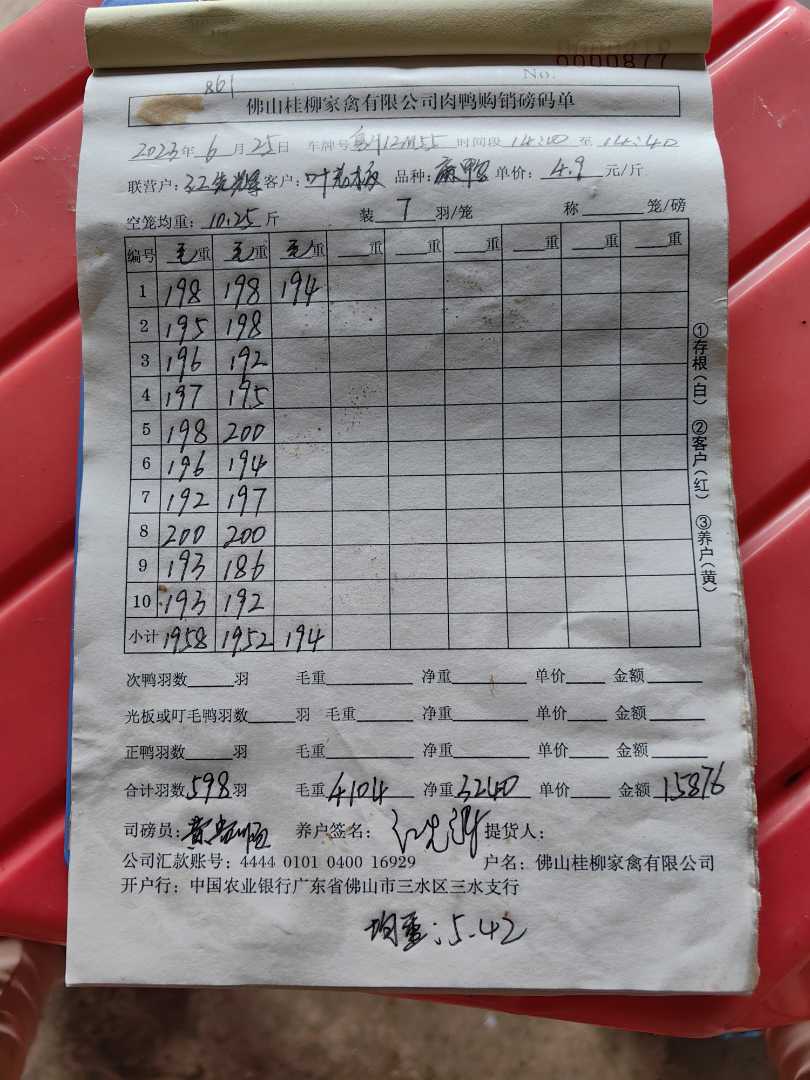 0000877
861
No.
佛山桂柳家禽有限公司肉鸭购销磅码单
2023年 6月 25日 车牌号 时间段 14:00 至 14:40
联营户: 江先辉 客户: 叶 板 品种: 麻鸭 单价: 4.9 元/斤
空笼均重: 10.25 斤 装 7 羽/笼 称 笼/磅
编号 毛重 毛重 毛重 重 重 重 重 重 重
1 198 198 194
2 195 198
3 196 192
4 197 195
5 198 200
6 196 194
7 192 197
8 200 200
9 193 186
10 193 192
小计 1958 1952 194
次鸭羽数 羽 毛重 净重 单价 金额
光板或叮毛鸭羽数 羽 毛重 净重 单价 金额
正鸭羽数 羽 毛重 净重 单价 金额
合计羽数 598 羽 毛重 4104 净重 3240 单价 金额 15876
司磅员: 黄 养户签名: 江先辉 提货人:
公司汇款账号: 4444 0101 0400 16929 户名: 佛山桂柳家禽有限公司
开户行: 中国农业银行广东省佛山市三水区三水支行
均重: 5.42
①存根(白) ②客户(红) ③养户(黄)